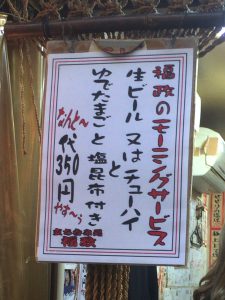 福政のモーニングサービス
生ビール 又は チューハイ
と
ゆでたまごと塩昆布付き
なんと〜
代350円
やす〜う
福政